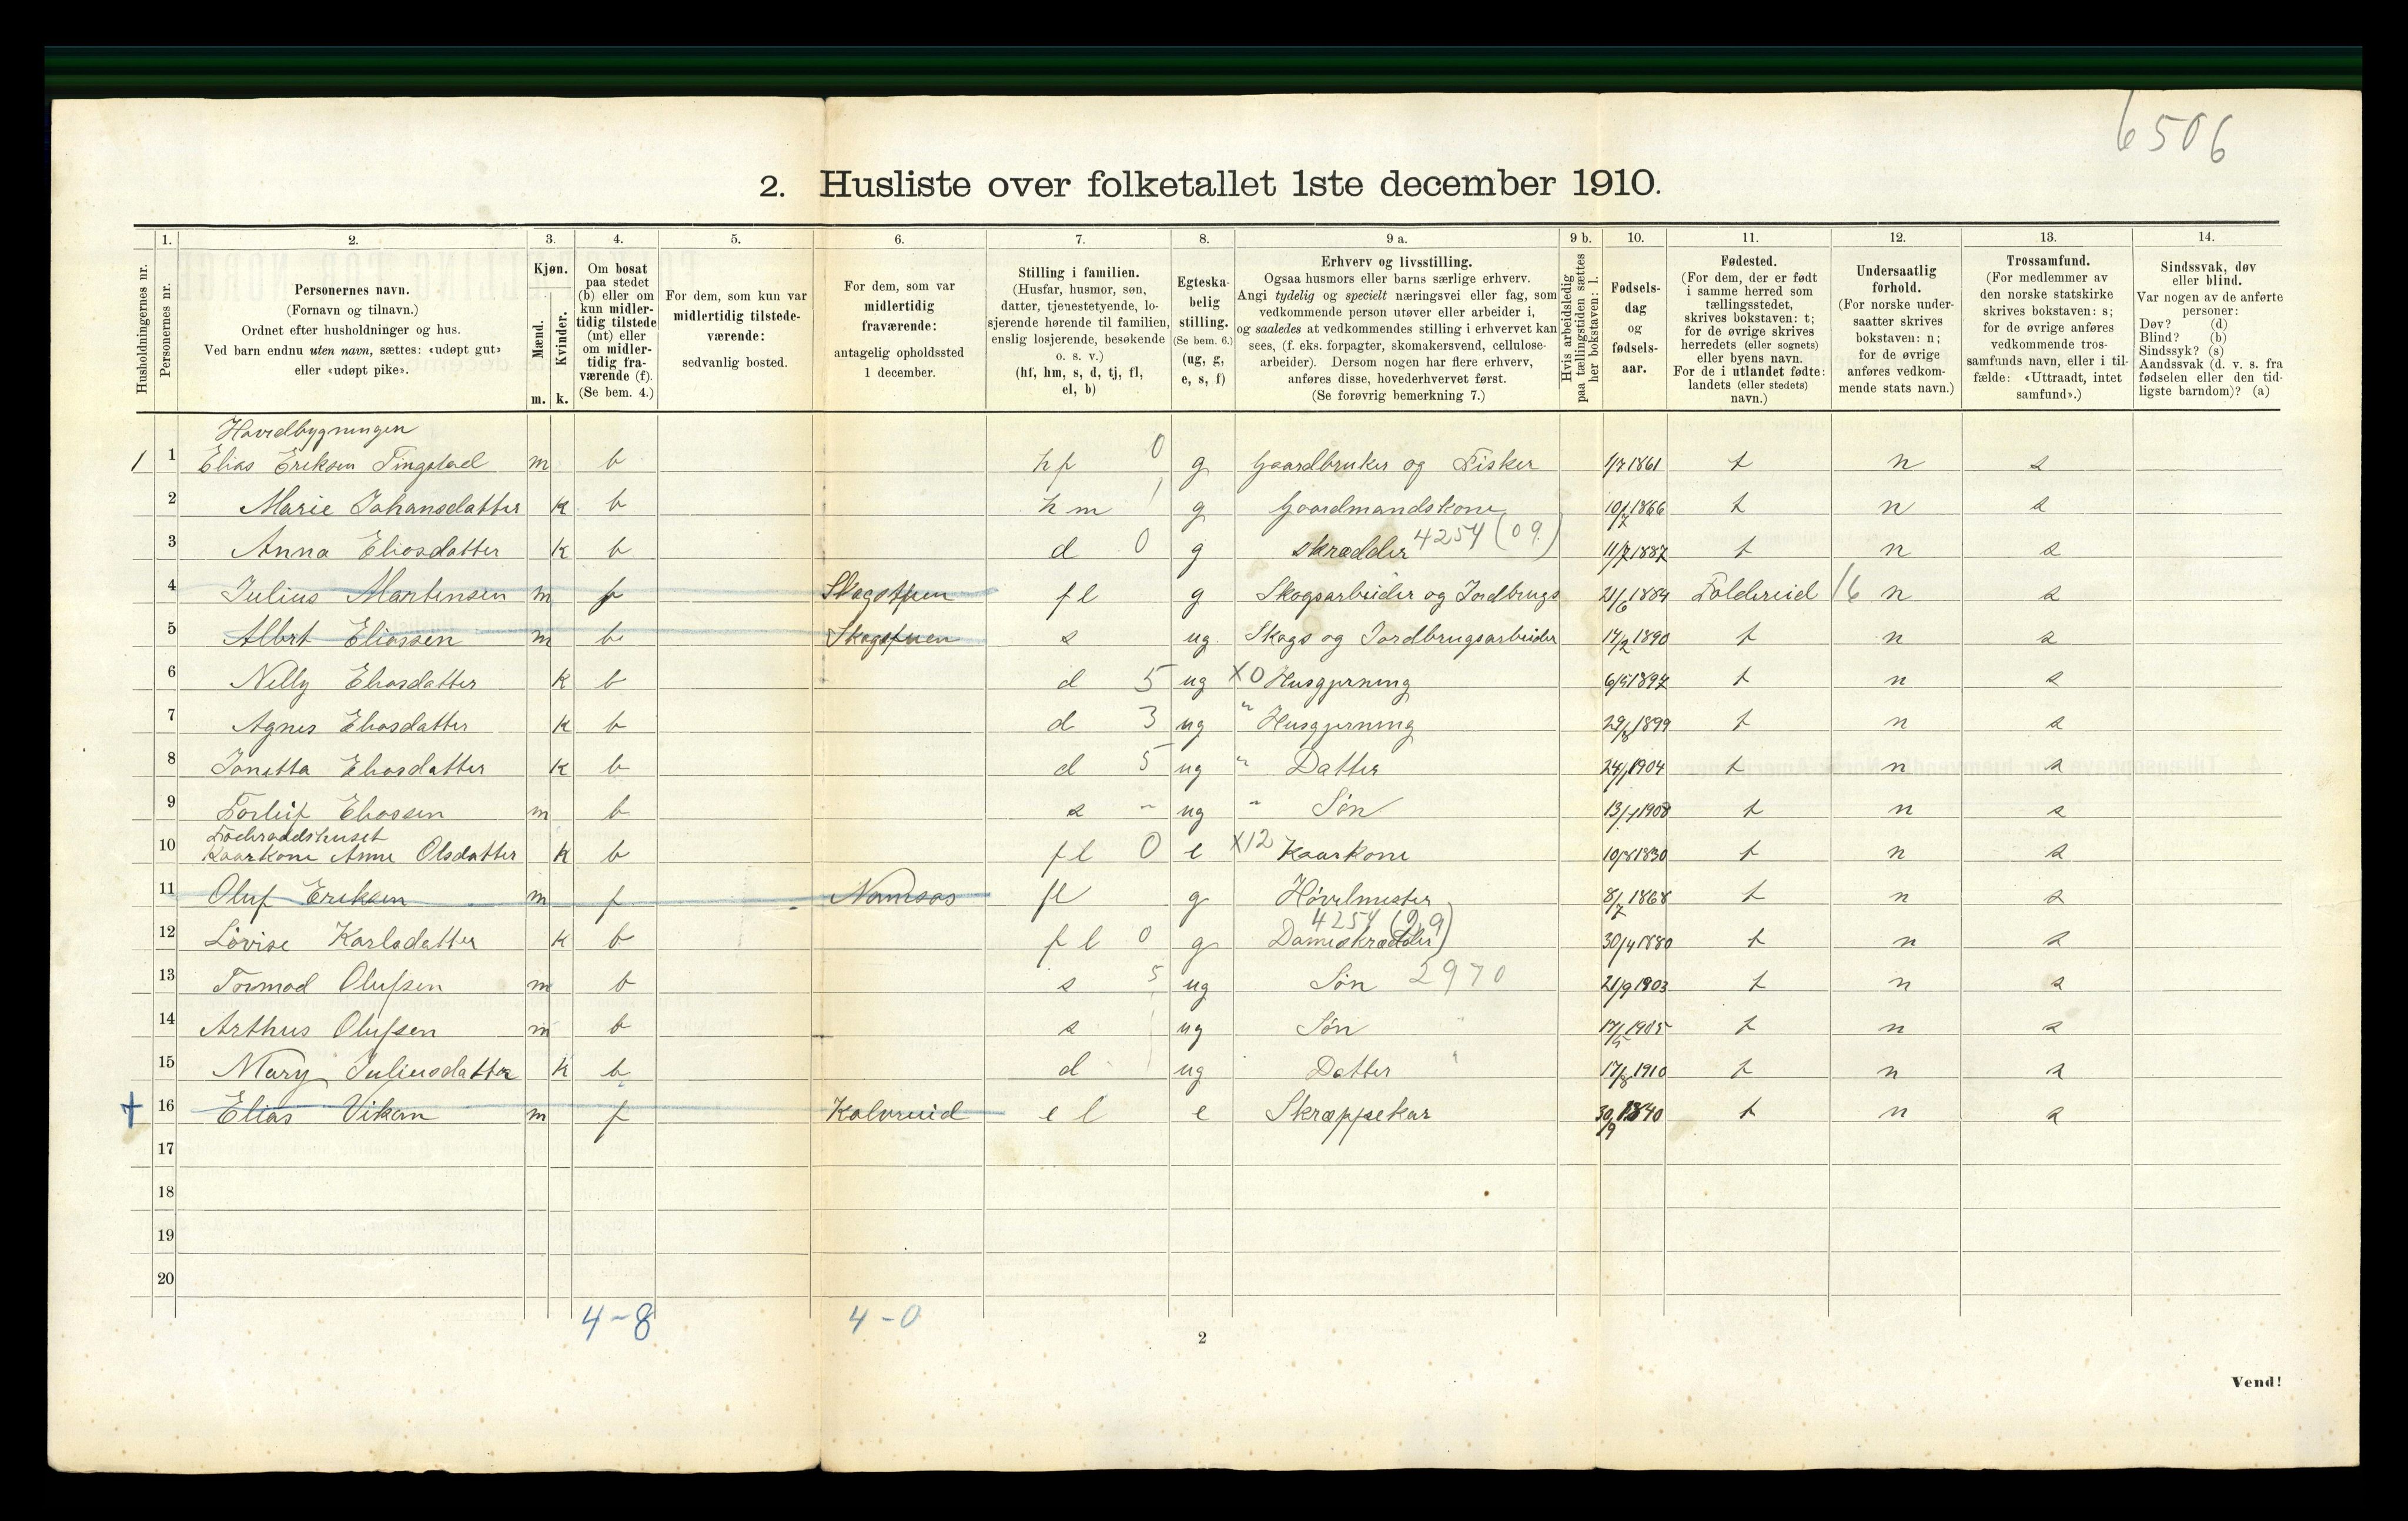 6506
2. Husliste over folketallet 1ste december 1910.
Husholdningernes nr.
1. Personernes nr.
2. Personernes navn. (Fornavn og tilnavn.) Ordnet efter husholdninger og hus. Ved barn endnu uten navn, sættes: «udøpt gut» eller «udøpt pike».
3. Kjøn. Mænd. m. Kvinder. k.
4. Om bosat paa stedet (b) eller om kun midlertidig tilstede (mt) eller om midlertidig fraværende (f). (Se bem. 4.)
5. For dem, som kun var midlertidig tilstedeværende: sedvanlig bosted.
6. For dem, som var midlertidig fraværende: antagelig opholdssted 1 december.
7. Stilling i familien. (Husfar, husmor, søn, datter, tjenestetyende, losjerende hørende til familien, enslig losjerende, besøkende o. s. v.) (hf, hm, s, d, tj, fl, el, b)
8. Egteskabelig stilling. (Se bem. 6.) (ug, g, e, s, f)
9 a. Erhverv og livsstilling. Ogsaa husmors eller barns særlige erhverv. Angi tydelig og specielt næringsvei eller fag, som vedkommende person utøver eller arbeider i, og saaledes at vedkommendes stilling i erhvervet kan sees, (f. eks. forpagter, skomakersvend, cellulosearbeider). Dersom nogen har flere erhverv, anføres disse, hovederhvervet først. (Se forøvrig bemerkning 7.)
9 b. Hvis arbeidsledig paa tællingstiden sættes her bokstaven: l.
10. Fødselsdag og fødselsaar.
11. Fødested. (For dem, der er født i samme herred som tællingsstedet, skrives bokstaven: t; for de øvrige skrives herredets (eller sognets) eller byens navn. For de i utlandet fødte: landets (eller stedets) navn.)
12. Undersaatlig forhold. (For norske undersaatter skrives bokstaven: n; for de øvrige anføres vedkommende stats navn.)
13. Trossamfund. (For medlemmer av den norske statskirke skrives bokstaven: s; for de øvrige anføres vedkommende trossamfunds navn, eller i tilfælde: «Uttraadt, intet samfund».)
14. Sindssvak, døv eller blind. Var nogen av de anførte personer: Døv? (d) Blind? (b) Sindssyk? (s) Aandssvak (d. v. s. fra fødselen eller den tidligste barndom)? (a)
Hovedbygningen
1 1 Elias Eriksen Tingstad m b hf 0 g Gaardbruker og Fisker 1/7 1861 t n s
2 Marie Johansdatter k b hm g Gaardmandskone 10/7 1866 t n s
3 Anna Eliasdatter k b d 0 g skrædder 4254 (09.) 11/7 1887 t n s
4 Julius Martensen m f Skogstuen fl g Skogsarbeider og Jordbrugs 21/6 1884 Foldereid 16 n s
5 Albert Eliassen m b Skogstuen s ug Skogs og Jordbrugsarbeider 14/2 1890 t n s
6 Nelly Eliasdatter k b d 5 ug X0 Husgjerning 6/5 1897 t n s
7 Agnes Eliasdatter k b d 3 ug " Husgjerning 29/8 1899 t n s
8 Jonetta Eliasdatter k b d 5 ug " Datter 24/1 1904 t n s
9 Torleif Eliassen m b s " ug " Søn 13/1 1908 t n s
Føderaadshuset
10 Kaarkone Anne Olsdatter k b fl 0 e X12 Kaarkone 10/8 1830 t n s
11 Oluf Eriksen m f Namsos fl g Høvelmester 8/7 1868 t n s
4254 (09)
12 Lovise Karlsdatter k b fl 0 g Dameskrædder 30/4 1880 t n s
13 Tormod Olufsen m b s 5 ug Søn 2970 21/9 1903 t n s
14 Arthur Olufsen m b s ug Søn " 17/5 1905 t n s
15 Mary Juliusdatter k b d ug Datter " 17/8 1910 t n s
+ 16 Elias Vikan m f Kolvereid el e Skræppekar 30/9 1840 t n s
17
18
19
20
4-8 4-0
2
Vend!